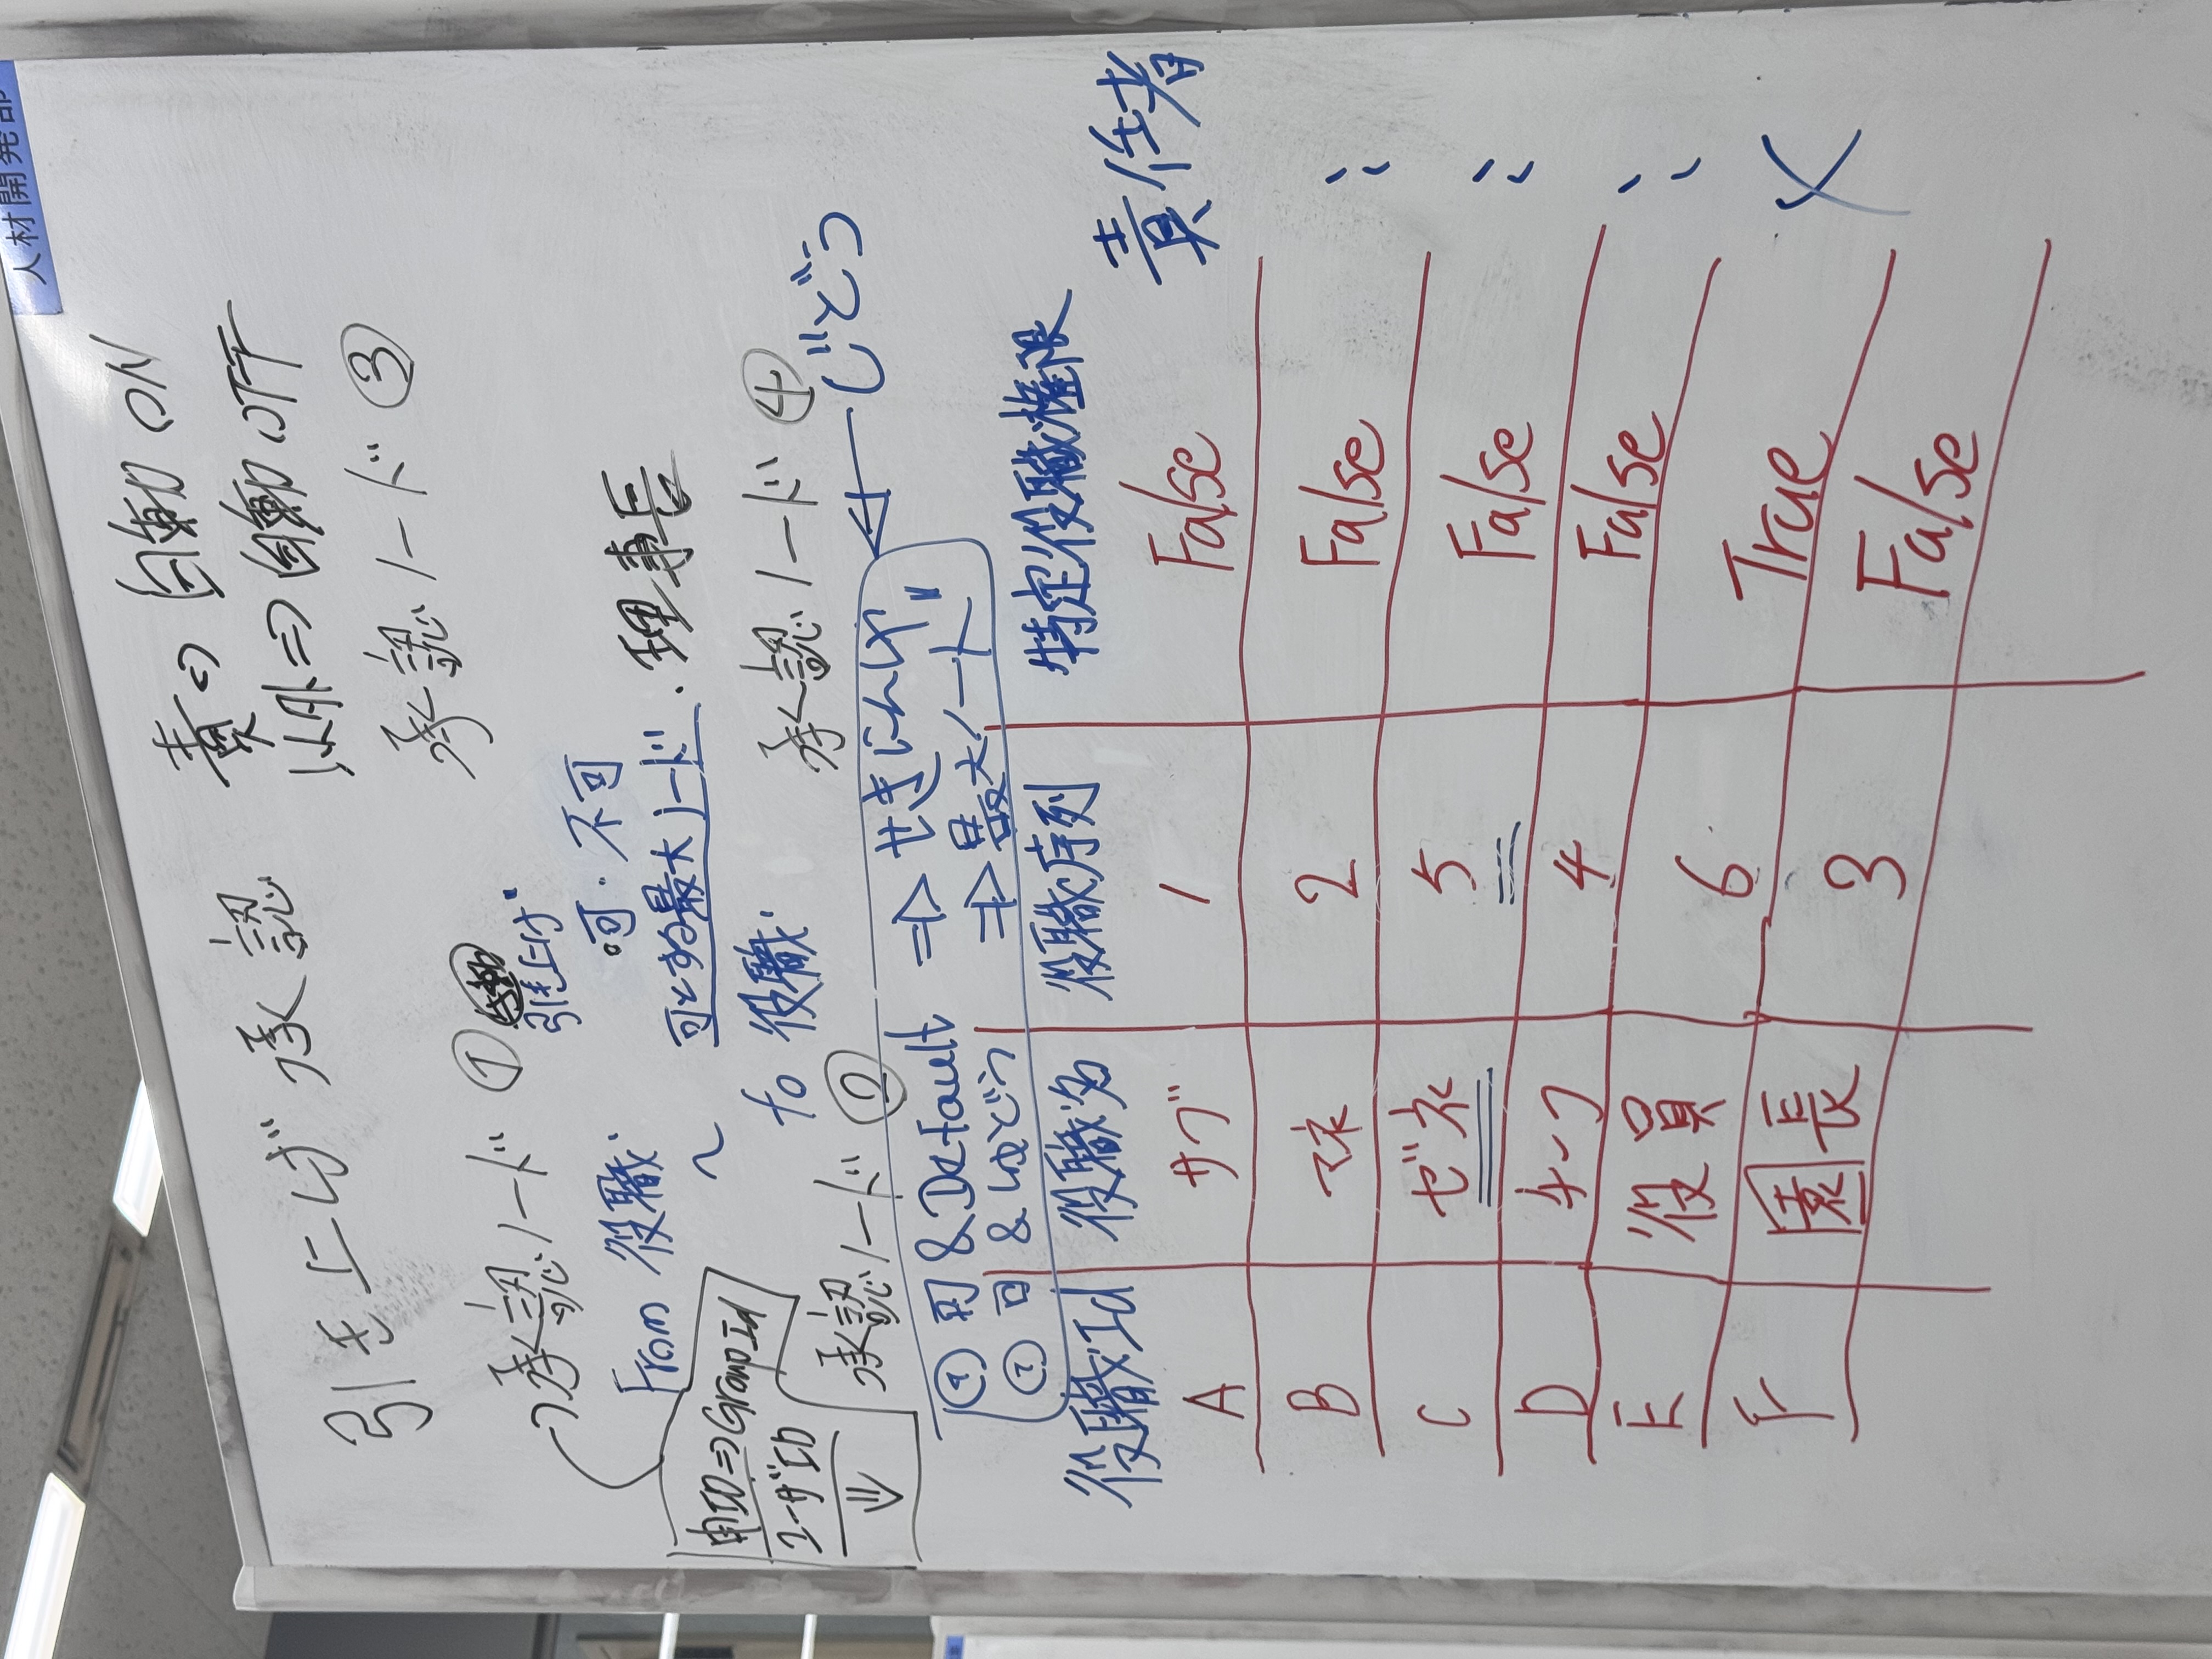 人材開発部
責⇒自動ON
以外⇒自動OFF
引き上げ承認
承認ノード③
承認ノード①
引き上げ
可・不可
From 役職
可とする最大ノード
理事長
〜
to 役職
申ID⇒GroupId
ユーザID
⇓
承認ノード④
承認ノード②
じどう
可&Default ⇒ せきにんしゃ
可&しゅどう ⇒ 最大ノード
役職Id 役職名 役職序列 特定役職権限 責任者
A サブ 1 False
B マネ 2 False
C ゼネ 5 False
D チーフ 4 False
E 役員 6 True ×
F 園長 3 False